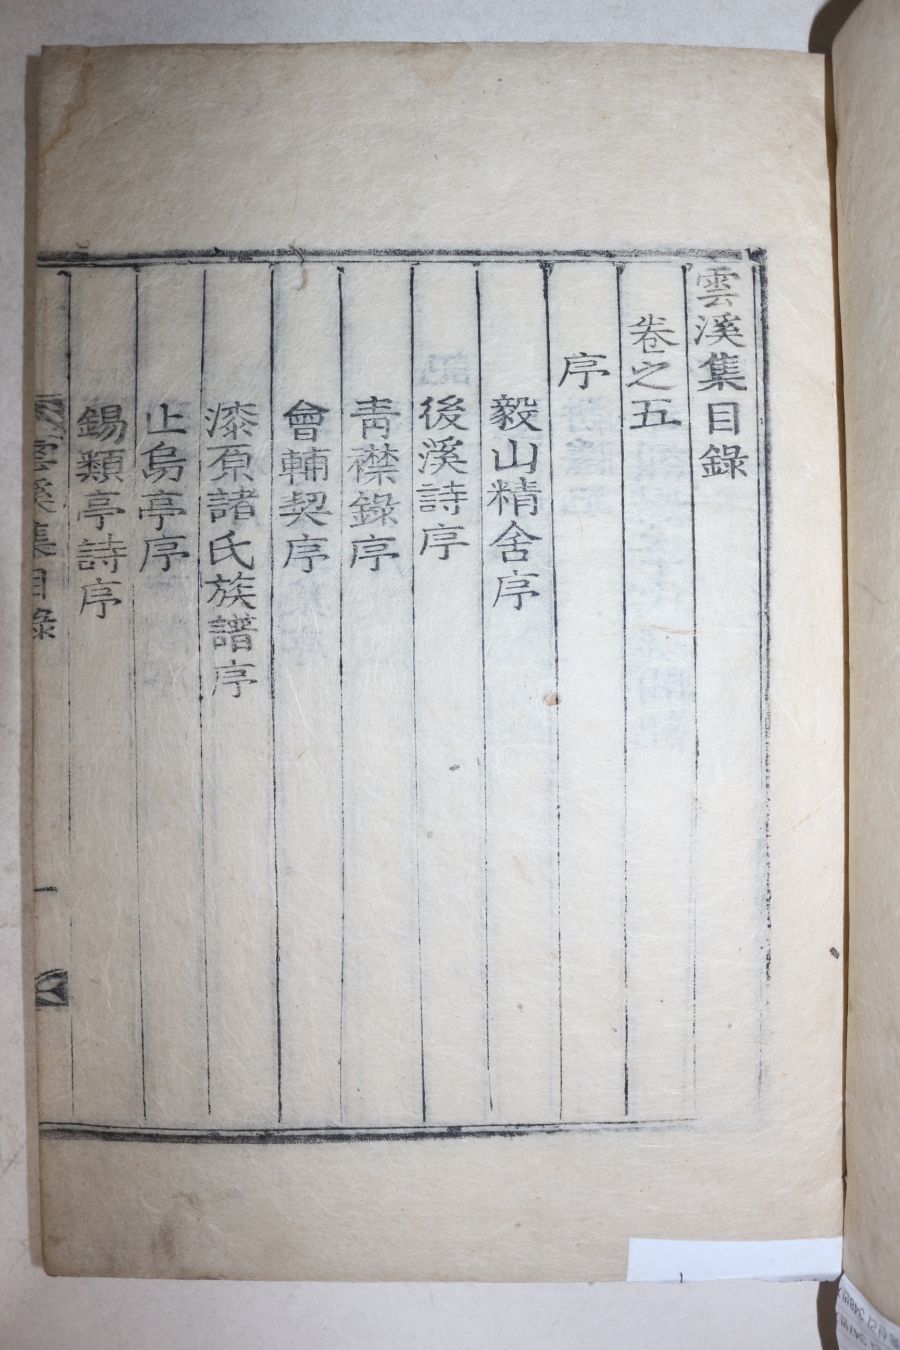 雲溪集目錄
卷之五
序
毅山精舍序
後溪詩序
靑襟錄序
會輔契序
漆原諸氏族譜序
止烏亭序
錫類亭詩序
雲溪集目錄
一